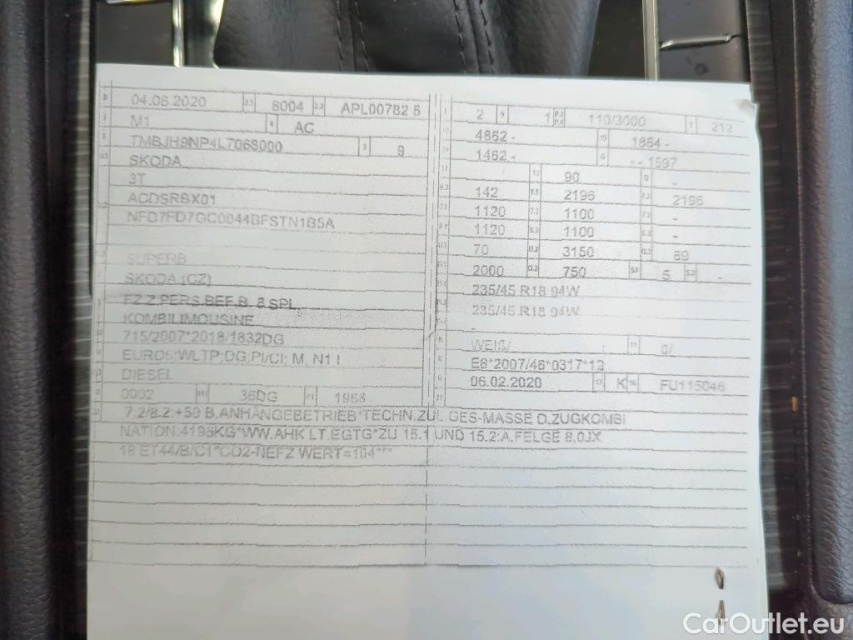 04.08.2020 8004 APL00782 6
M1 AC
TMBJH9NP4L7068000 9
SKODA
3T
ACDSRBX01
NFD7FD7GC0044BFSTN1B5A
SUPERB
SKODA (CZ)
FZ.Z.PERS.BEF.B. 8 SPL.
KOMBILIMOUSINE
715/2007*2018/1832DG
EURO6;WLTP;DG;PI/CI; M, N1 I
DIESEL
0002 36DG 1968
2 1 110/3000 212
4862 - 1864 -
1462 - - - 1597
90 -
142 2196 2196
1120 1100 -
1120 1100 -
70 3150 69
2000 750 5 -
235/45 R18 94W
235/45 R18 94W
-
WEIß/ 0/
E8*2007/46*0317*12
06.02.2020 K FU115046
7.2/8.2:+50 B.ANHÄNGEBETRIEB*TECHN.ZUL.GES-MASSE D.ZUGKOMBI
NATION:4195KG*WW.AHK LT.EGTG*ZU 15.1 UND 15.2:A.FELGE 8,0JX
18 ET44/B/C1*CO2-NEFZ WERT=104***
CarOutlet.eu